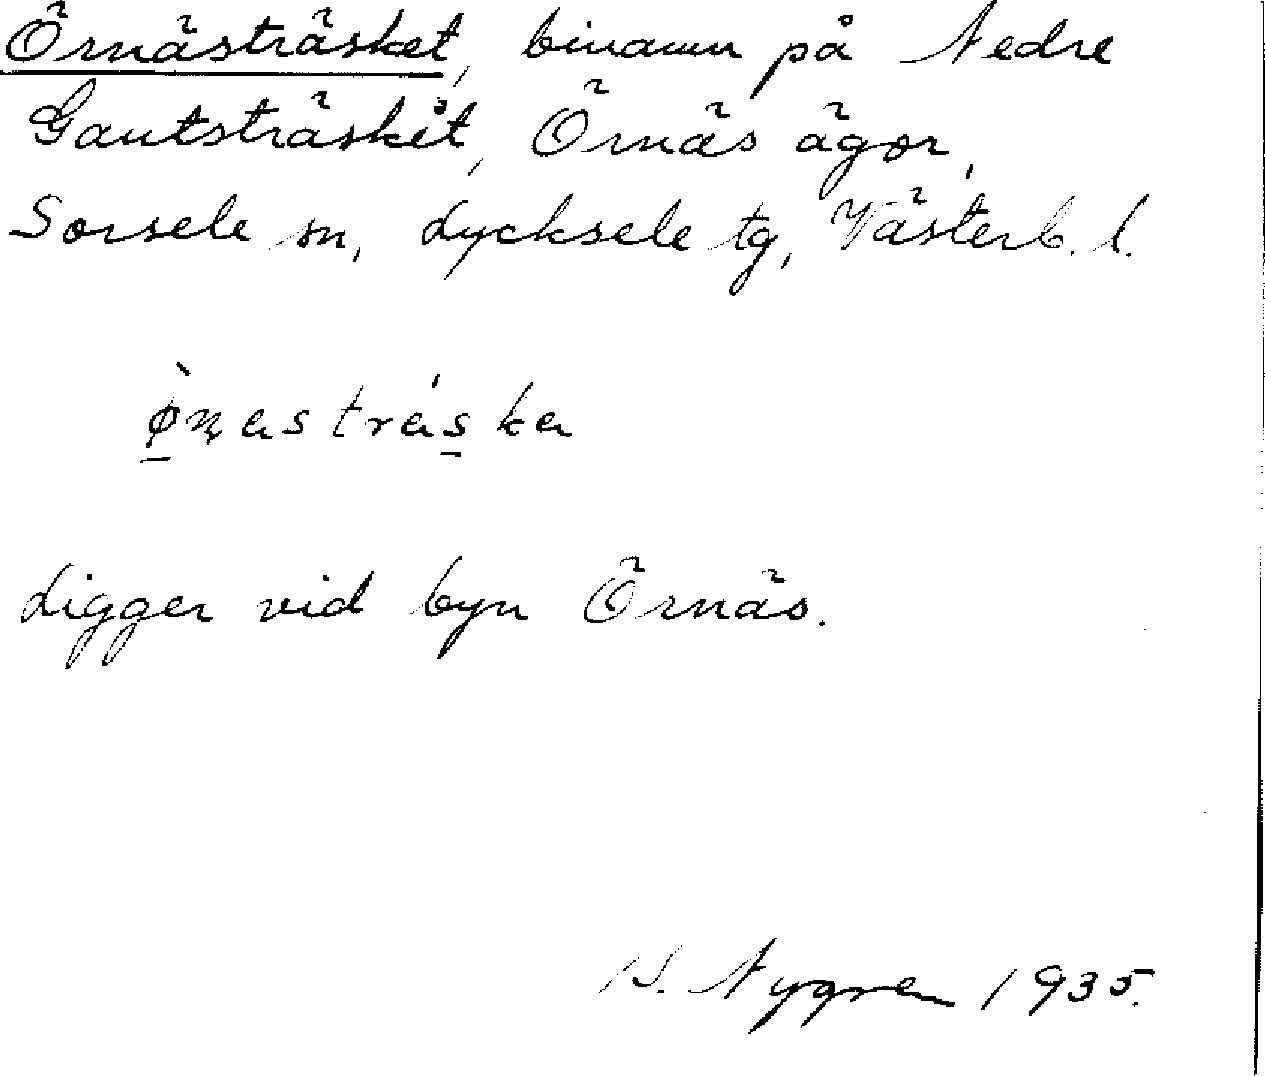 Örnästräsket, binamn på Nedre
Gautsträsket, Örnäs ägor,
Sorsele sn, Lycksele tg, Västerb. l.
Ligger vid byn Örnäs.
Nygren 1935.